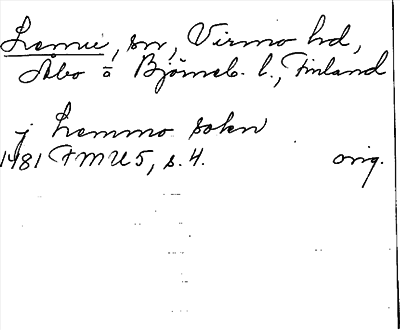 Lemu, sn, Virmo hd,
Åbo o Björneb. l., Finland
j Lemmo sokn
1481 FMU 5, s. 4. orig.